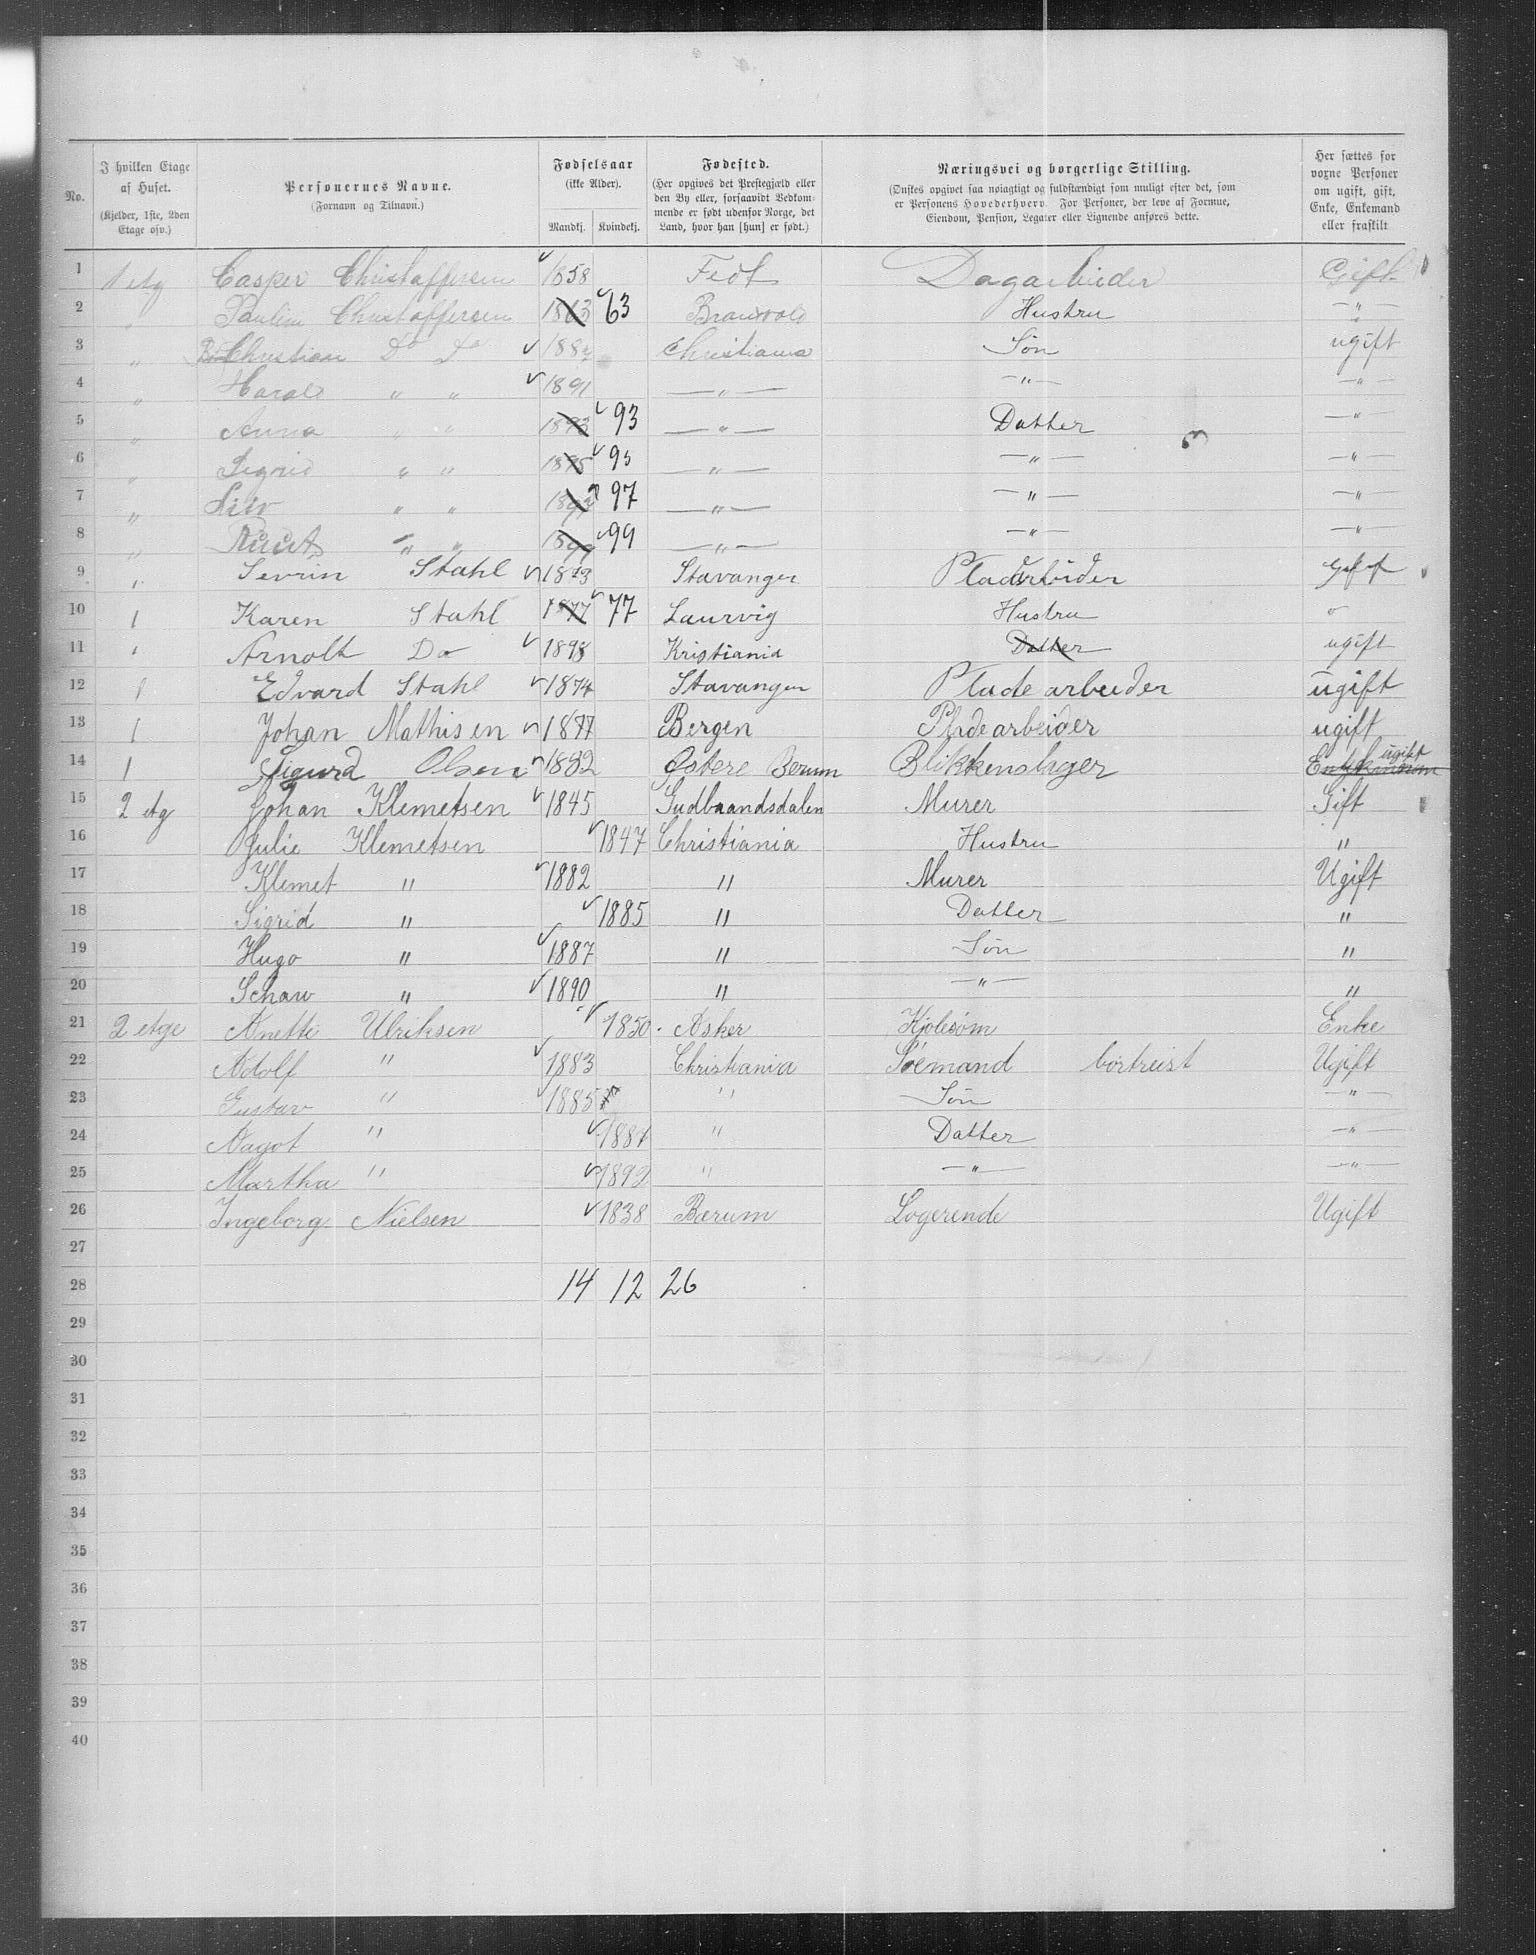 No. | I hvilken Etage af Huset. (Kjelder, 1ste, 2den Etage osv.) | Personernes Navne. (Fornavn og Tilnavn.) | Fødselsaar (ikke Alder). Mandkj. Kvindekj. | Fødested. (Her opgives det Prestegjæld eller den By eller, forsaavidt Vedkommende er født udenfor Norge, det Land, hvor han [hun] er født.) | Næringsvei og borgerlige Stilling. (Ønskes opgivet saa nøiagtigt og fuldstændigt som muligt efter det, som er Personens Hovederhverv. For Personer, der leve af Formue, Eiendom, Pension, Legater eller Lignende anføres dette.) | Her sættes for voxne Personer om ugift, gift, Enke, Enkemand eller fraskilt
1 1 etg Casper Christaffersen 1858 Fedt Dagarbeider Gift
2 " Pauline Christaffersen 1863 63 Hustru —"—
3 " Christian Do Do 188 Christiania Søn ugift
4 " Harald " " 1891 —"— —"— —"—
5 " Anna " " 1893 93 —"— Datter —"—
6 " Sigrid " " 1895 95 —"— —"— —"—
7 " " " 1897 97 —"— —"— —"—
8 " " " 1899 99 —"— —"— —"—
9 " Sevrin Stahl 1873 Stavanger Pladearbeider Gift
10 1 Karen Stahl 1877 77 Laurvig Hustru "
11 " Arnolt Do 1898 Kristiania Datter ugift
12 1 Edvard Stahl 1874 Stavanger Plade arbeider ugift
13 1 Johan Mathisen 1877 Bergen Pladearbeider ugift
14 1 Sigurd Olsen 1882 Østere Berum Blikkenslager Enkemann ugift
15 2 etg Johan Klemetsen 1845 Gudbrandsdalen Murer Gift
16 Julie Klemetsen 1847 Christiania Hustru "
17 Klemet " 1882 " Murer Ugift
18 Sigrid " 1885 " Datter "
19 Hugo " 1887 " Søn "
20 Schaw " 1890 " —"— "
21 2 etge Anette Ulriksen 1850 Asker Kjolesøm Enke
22 Adolf " 1883 Christiania Sømand bortreist Ugift
23 Gustav " 1885 " Søn —"—
24 Aagot " 1887 " Datter —"—
25 Martha " 1892 " —"— —"—
26 Ingeborg Nielsen 1838 Bærum Logerende Ugift
27
28 14 12 26
29
30
31
32
33
34
35
36
37
38
39
40